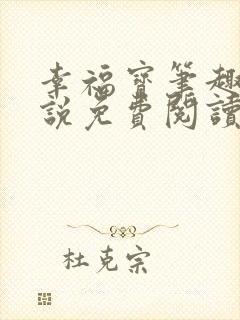 幸福寶筆趣
說免費閱讀
杜克宗